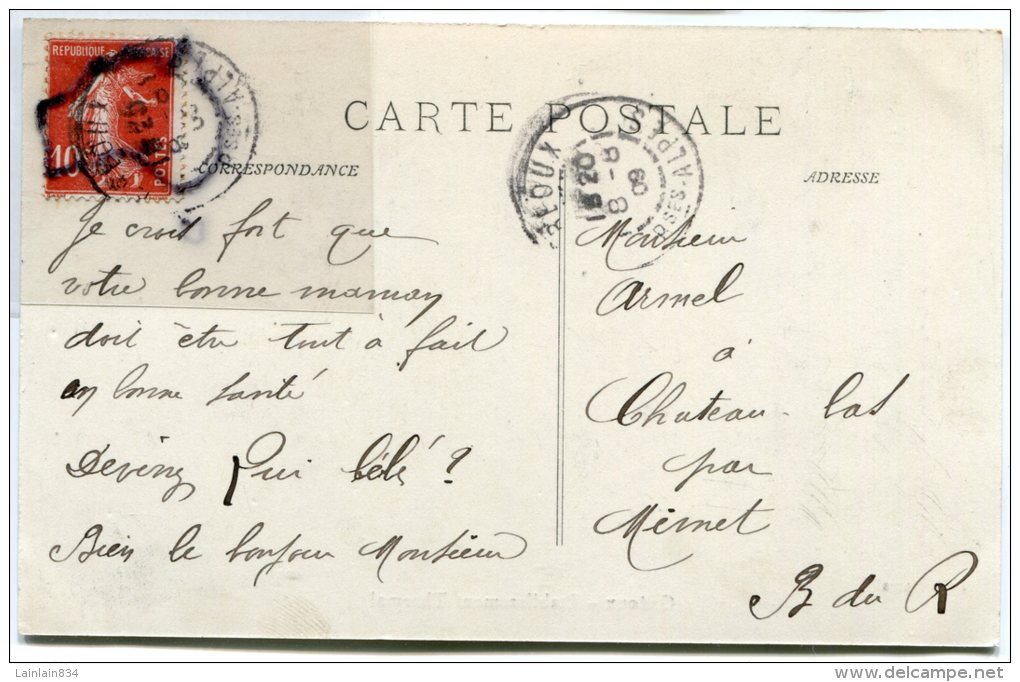 REPUBLIQUE FRANÇAISE
10
POSTES
CARTE POSTALE
CORRESPONDANCE
ADRESSE
GREOUX
BSES-ALPES
15 20
8-8
09
Je crois fort que
votre bonne maman
doit être tout à fait
en bonne santé
Devinez Qui ?
Bien le bonjour Monsieur
Monsieur
Armel
à
Chateau-bas
par
Mimet
B du R
Lainlain834
delcampe.net